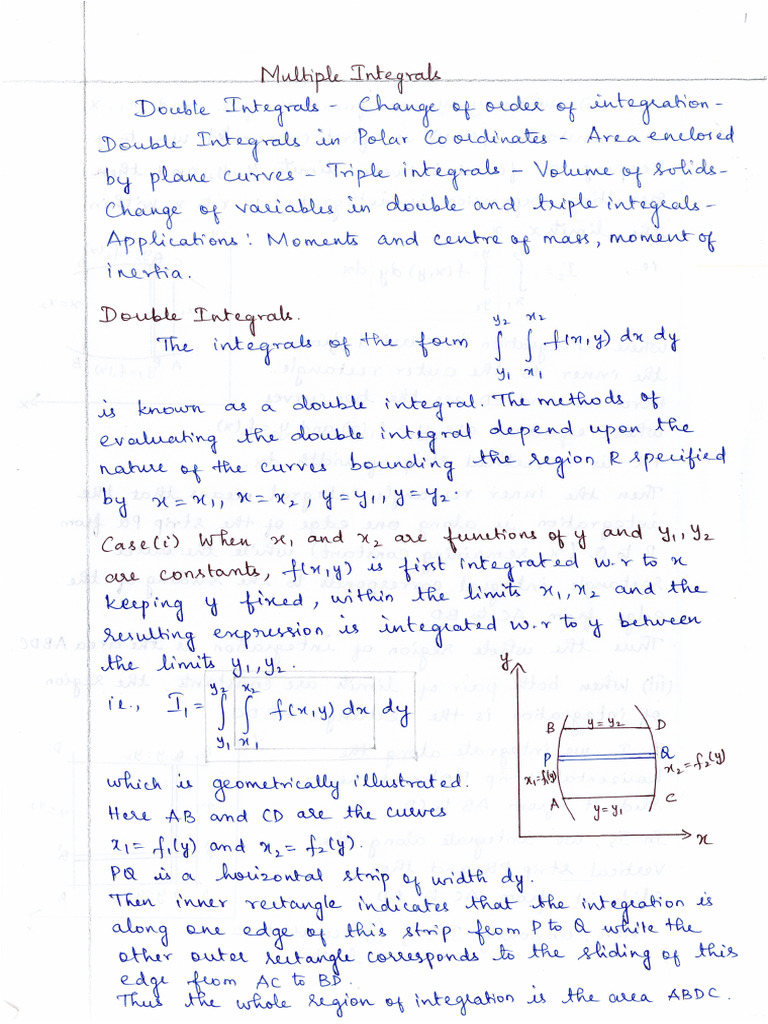 1
Multiple Integrals
Double Integrals - Change of order of integration -
Double Integrals in Polar Coordinates - Area enclosed
by plane curves - Triple integrals - Volume of solids -
Change of variables in double and triple integrals -
Applications: Moments and centre of mass, moment of
inertia.
Double Integrals.
The integrals of the form ∫_{y₁}^{y₂} ∫_{x₁}^{x₂} f(x,y) dx dy
is known as a double integral. The methods of
evaluating the double integral depend upon the
nature of the curves bounding the region R specified
by x = x₁, x = x₂, y = y₁, y = y₂.
Case(i) When x₁ and x₂ are functions of y and y₁, y₂
are constants, f(x,y) is first integrated w.r to x
keeping y fixed, within the limits x₁, x₂ and the
resulting expression is integrated w.r to y between
the limits y₁, y₂.
i.e., I₁ = ∫_{y₁}^{y₂} ∫_{x₁}^{x₂} f(x,y) dx dy
y
B y = y₂ D
P Q
x₁=f₁(y) x₂=f₂(y)
A y = y₁ C
x
which is geometrically illustrated.
Here AB and CD are the curves
x₁ = f₁(y) and x₂ = f₂(y).
PQ is a horizontal strip of width dy.
Then inner rectangle indicates that the integration is
along one edge of this strip from P to Q while the
other outer rectangle corresponds to the sliding of this
edge from AC to BD.
Thus the whole region of integration is the area ABDC.